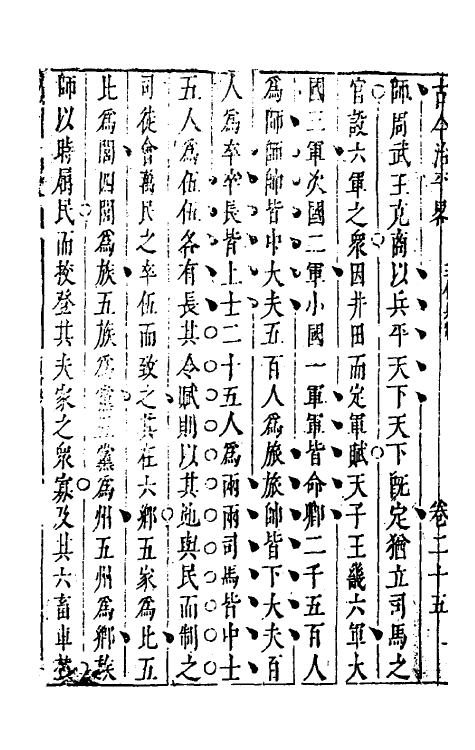 古今治平畧
卷二十五
師周武王克商以兵平天下天下旣定猶立司馬之
官設六軍之衆因井田而定軍賦天子王畿六軍大
國三軍次國二軍小國一軍軍皆命卿二千五百人
爲師師帥皆中大夫五百人爲旅旅帥皆下大夫百
人爲卒卒長皆上士二十五人爲兩兩司馬皆中士
五人爲伍伍各有長其令賦則以其地與民而制之
司徒會萬民之卒伍而致之其在六鄉五家爲比五
比爲閭四閭爲族五族爲黨五黨爲州五州爲鄉族
師以時屬民而校登其夫家之衆寡及其六畜車